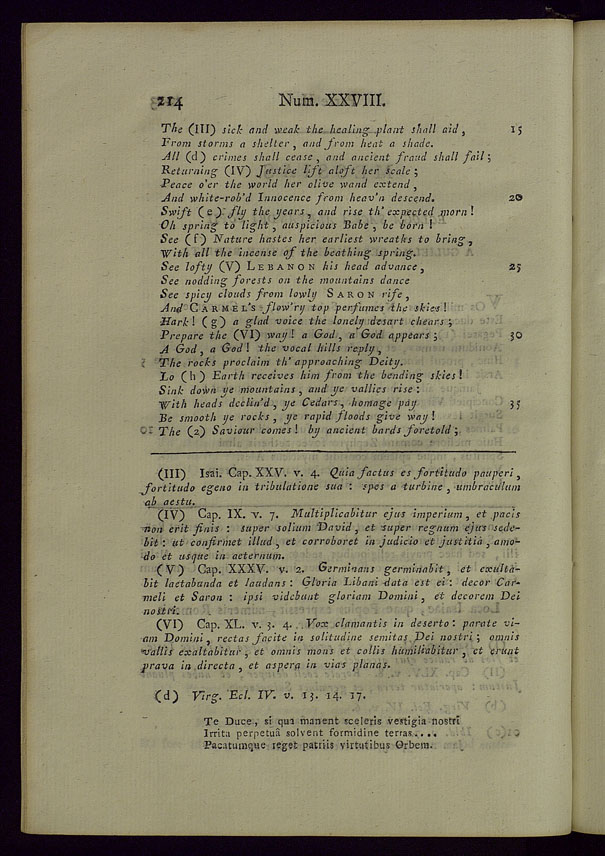 214 Num. XXVIII.
The (III) sick and weak the healing plant shall aid, 15
From storms a shelter, and from heat a shade.
All (d) crimes shall cease, and ancient fraud shall fail;
Returning (IV) Justice lift aloft her scale;
Peace o'er the world her olive wand extend,
And white-rob'd Innocence from heav'n descend. 20
Swift (e) fly the years, and rise th' expected morn!
Oh spring to light, auspicious Babe, be born!
See (f) Nature hastes her earliest wreatks to bring,
With all the incense of the beathing spring.
See lofty (V) LEBANON his head advance, 25
See nodding forests on the mountains dance
See spicy clouds from lowly SARON rife,
And CARMEL'S flow'ry top perfumes the skies!
Hark! (g) a glad voice the lonely desart chears;
Prepare the (VI) way! a God, a God appears; 30
A God, a God! the vocal hills reply,
The rocks proclaim th' approaching Deity.
Lo (h) Earth receives him from the bending skies!
Sink down ye mountains, and ye vallies rise:
With heads declin'd, ye Cedars, homage pay 35
Be smooth ye rocks, ye rapid floods give way!
The (2) Saviour comes! by ancient bards foretold;
(III) Isai. Cap. XXV. v. 4. Quia factus es fortitudo pauperi,
fortitudo egeno in tribulatione sua: spes a turbine, umbraculum
ab aestu.
(IV) Cap. IX. v. 7. Multiplicabitur ejus imperium, et pacis
non erit finis: super solium David, et super regnum ejus sede-
bit: ut confirmet illud, et corroboret in judicio et justitiâ, amo-
do et usque in aeternum.
(V) Cap. XXXV. v. 2. Germinans germinabit, et exulta-
bit laetabunda et laudans: Gloria Libani data est ei: decor Car-
meli et Saron: ipsi videbunt gloriam Domini, et decorem Dei
nostri.
(VI) Cap. XL. v. 3. 4. Vox clamantis in deserto: parate vi-
am Domini, rectas facite in solitudine semitas Dei nostri; omnis
vallis exaltabitur, et omnis mons et collis humiliabitur, et erunt
prava in directa, et aspera in vias planas.
(d) Virg. Ecl. IV. v. 13. 14. 17.
Te Duce, si qua manent sceleris vestigia nostri
Irrita perpetuâ solvent formidine terras....
Pacatumque reget patriis virtutibus Orbem.